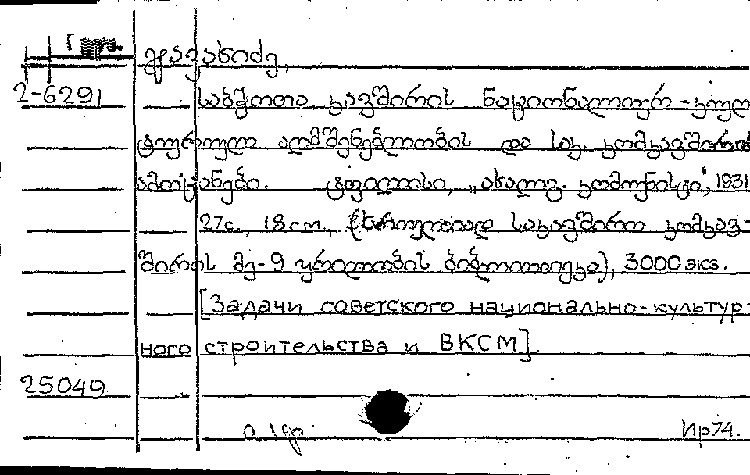 ჯავახიძე,
2-6291 საბჭოთა კავშირის ნაციონალიურ-კულ
ტურულ აღმშენებლობის და საკ. კომკავშირის
ამოცანები. ტფილისი, „ახალგ. კომუნისტი", 1931
27с., 18см., (სრულიად საკავშირო კომკავ-
შირის მე-9 ყრილობის ბიბლიოთეკა), 3000 экз.
[Задачи советского национально-культур-
ного строительства и ВКСМ]
25049
Ир74.